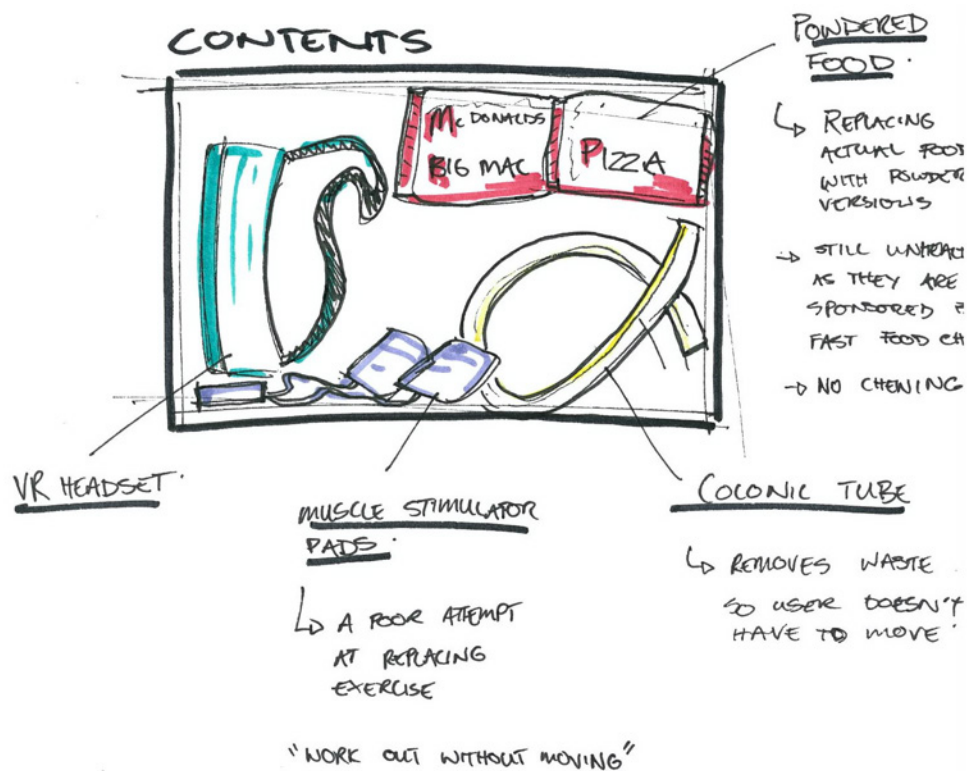 CONTENTS
POWDERED
FOOD.
↳ REPLACING
ACTUAL FOOD
WITH POWDERE
VERSIONS
McDONALDS
BIG MAC
PIZZA
→ STILL
AS THEY ARE
SPONSORED
FAST FOOD CH
→ NO CHEWING
VR HEADSET.
MUSCLE STIMULATOR
PADS.
↳ A POOR ATTEMPT
AT REPLACING
EXERCISE
"WORK OUT WITHOUT MOVING"
COLONIC TUBE
↳ REMOVES WASTE
SO USER DOESN'T
HAVE TO MOVE.